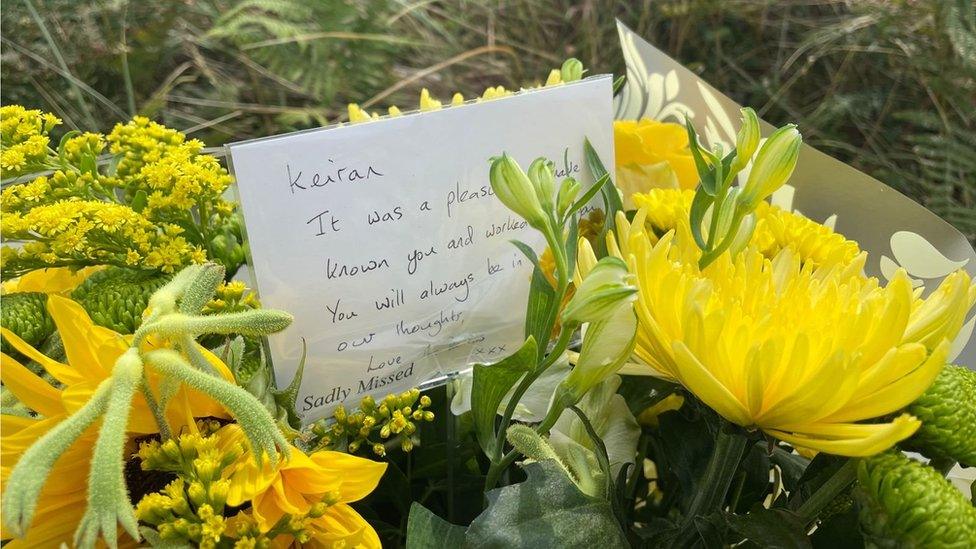 Keiran
It was a pleasure
known you and worked
You will always be in
our thoughts,
Love
xxx
Sadly Missed